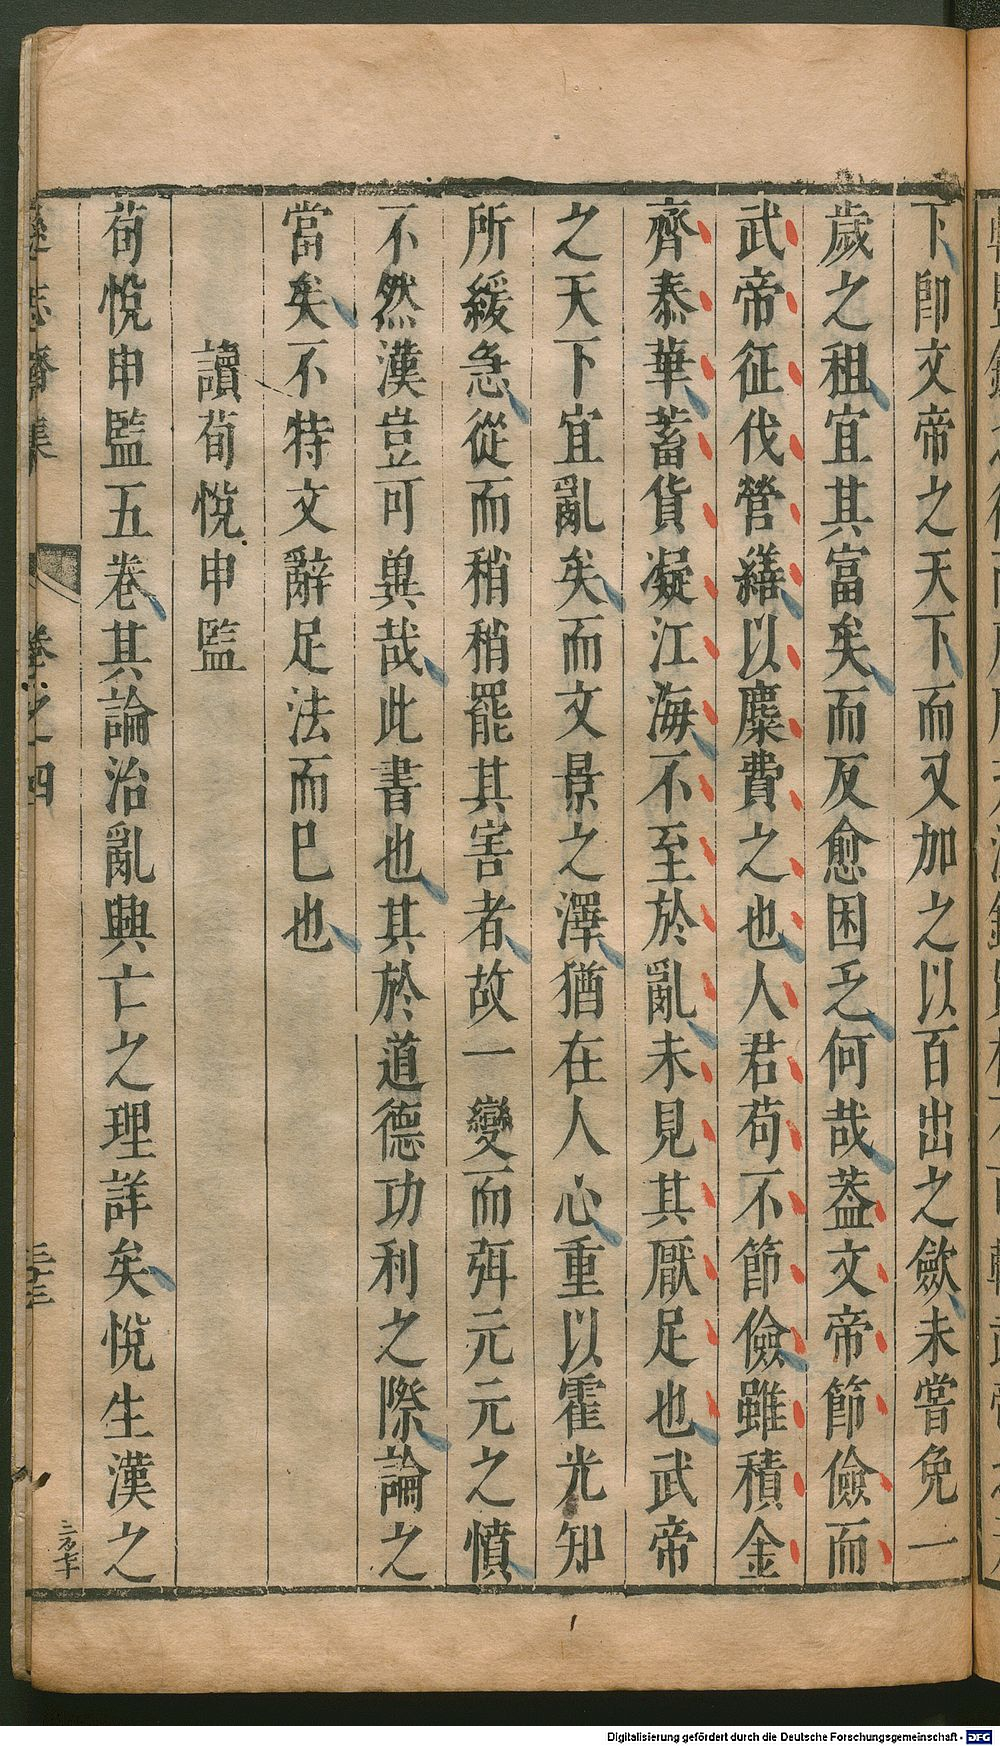 下卽文帝之天下而又加之以百出之歛未嘗免一
歲之租宜其富矣而反愈困乏何哉葢文帝節儉而
武帝征伐營繕以麋費之也人君苟不節儉雖積金
齊泰華蓄貨凝江海不至於亂未見其厭足也武帝
之天下宜亂矣而文景之澤猶在人心重以霍光知
所緩急從而稍稍罷其害者故一變而弭元元之憤
不然漢豈可兾哉此書也其於道德功利之際論之
當矣不特文辭足法而巳也
讀荀悅申監
荀悅申監五卷其論治亂興亡之理詳矣悅生漢之
遜志齋集
卷之四
三十三
Digitalisierung gefördert durch die Deutsche Forschungsgemeinschaft - DFG